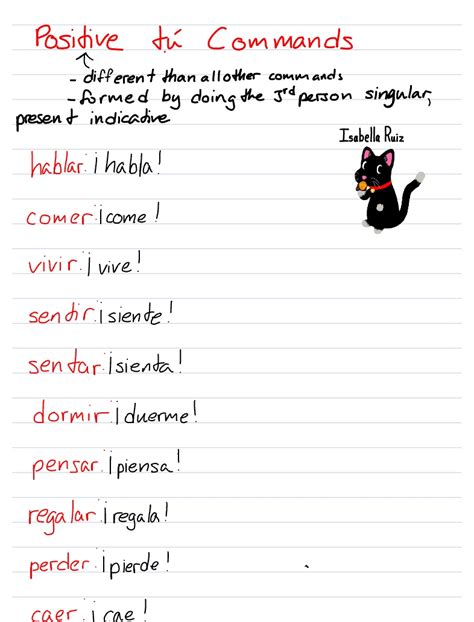 Positive tú Commands
- different than all other commands
- formed by doing the 3rd person singular,
present indicative
Isabella Ruiz
hablar: ¡habla!
comer: ¡come!
vivir: ¡vive!
sentir: ¡siente!
sentar: ¡sienta!
dormir: ¡duerme!
pensar: ¡piensa!
regalar: ¡regala!
perder: ¡pierde!
caer: ¡cae!